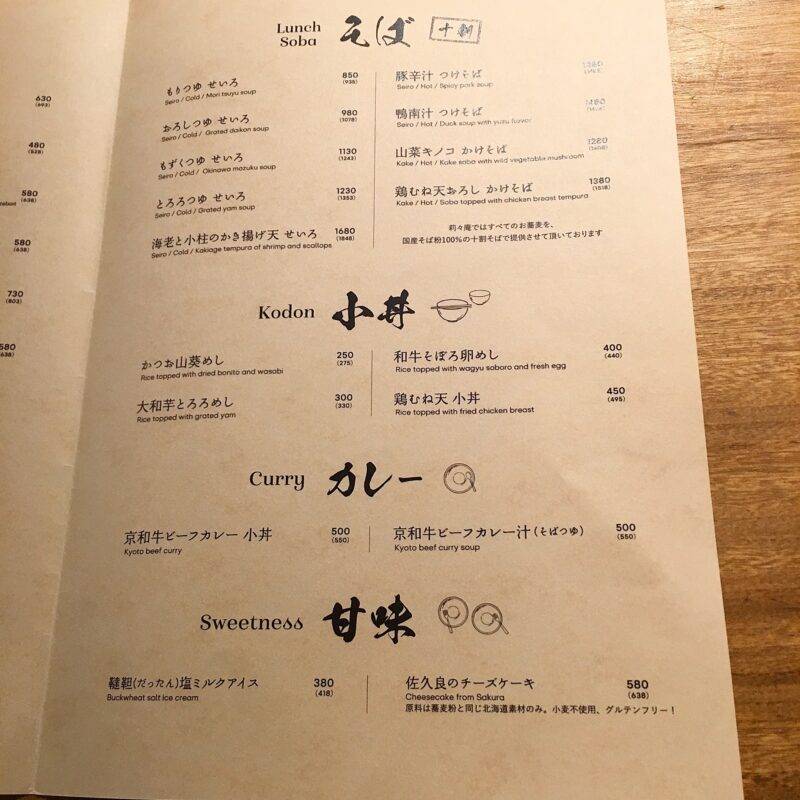 630
(693)
480
(528)
580
(638)
580
(638)
730
(803)
580
(638)
Lunch
Soba
そば
十割
もりつゆ せいろ 850
Seiro / Cold / Mori tsuyu soup (935)
おろしつゆ せいろ 980
Seiro / Cold / Grated daikon soup (1078)
もずくつゆ せいろ 1130
Seiro / Cold / Okinawa mozuku soup (1243)
とろろつゆ せいろ 1230
Seiro / Cold / Grated yam soup (1353)
海老と小柱のかき揚げ天 せいろ 1680
Seiro / Cold / Kakiage tempura of shrimp and scallops (1848)
豚辛汁 つけそば 1380
Seiro / Hot / Spicy pork soup
鴨南汁 つけそば
Seiro / Hot / Duck soup with yuzu flavor
山菜キノコ かけそば 1280
Kake / Hot / Kake soba with wild vegetable mushroom (1408)
鶏むね天おろし かけそば 1380
Kake / Hot / Soba topped with chicken breast tempura (1518)
莉々庵ではすべてのお蕎麦を、
国産そば粉100%の十割そばで提供させて頂いております
Kodon 小丼
かつお山葵めし 250
Rice topped with dried bonito and wasabi (275)
大和芋とろろめし 300
Rice topped with grated yam (330)
和牛そぼろ卵めし 400
Rice topped with wagyu soboro and fresh egg (440)
鶏むね天 小丼 450
Rice topped with fried chicken breast (495)
Curry カレー
京和牛ビーフカレー 小丼 500
Kyoto beef curry (550)
京和牛ビーフカレー汁(そばつゆ) 500
Kyoto beef curry soup (550)
Sweetness 甘味
韃靼(だったん)塩ミルクアイス 380
Buckwheat salt ice cream (418)
佐久良のチーズケーキ 580
Cheesecake from Sakura (638)
原料は蕎麦粉と同じ北海道素材のみ。小麦不使用、グルテンフリー!